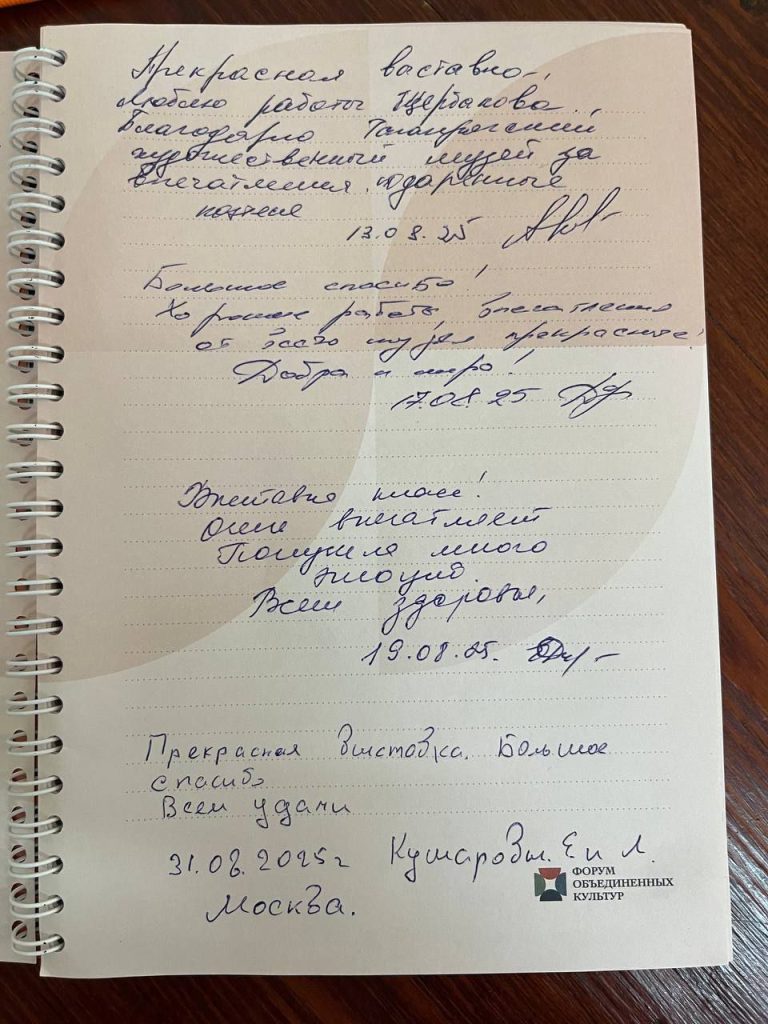 Прекрасная выставка,
люблю работы Щербакова,
Благодарю Таганрогский
художественный музей за
впечатления, подаренные
13.08.25
Большое спасибо!
Хорошие работы, впечатления
от всего музея прекрасные!
Добра и мира!
17.08.25
Выставка класс!
Очень впечатляет
Получила много
эмоций.
Всем здоровья,
19.08.25.
Прекрасная выставка. Большое
спасибо
Всем удачи
31.08.2025г Кушаровы. Е и Л.
Москва.
ФОРУМ
ОБЪЕДИНЕННЫХ
КУЛЬТУР